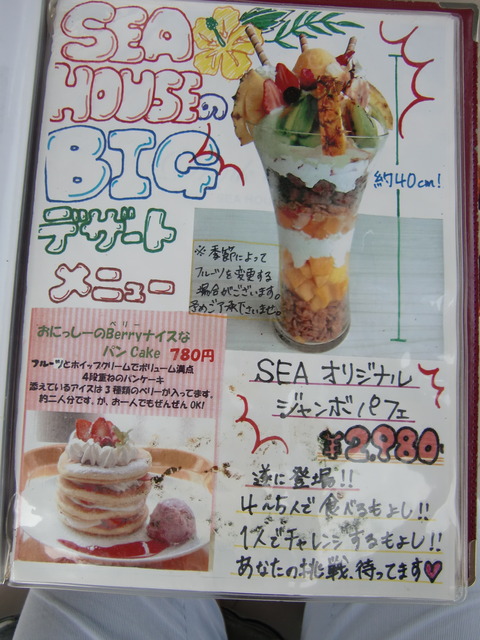 SEA
HOUSEの
BIG
デザート
メニュー
約40cm!
※季節によって
フルーツを変更する
場合がございます。
予めご了承下さいませ。
ベリー
おにっしーのBerryナイスな
パン Cake 780円
フルーツとホイップクリームでボリューム満点
4段重ねのパンケーキ
添えているアイスは3種類のベリーが入ってます。
約二人分です。が、お一人でもぜんぜんOK!
SEA オリジナル
ジャンボパフェ
¥2,980-
遂に登場!!
4~5人で食べるもよし!!
1人でチャレンジするもよし!!
あなたの挑戦、待ってます♡